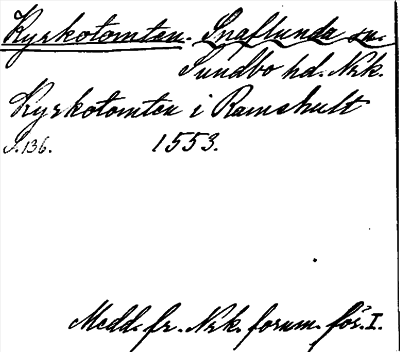 Kyrkotomten. Snaflunda sn.
Sundbo hd. Nrk.
Kyrkotomten i Ramshult
S. 136. 1553.
Medd. fr. Nrk. fornm. för. I.